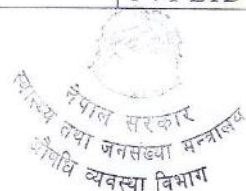 नेपाल सरकार
स्वास्थ्य तथा जनसंख्या मन्त्रालय
औषधि व्यवस्था विभाग